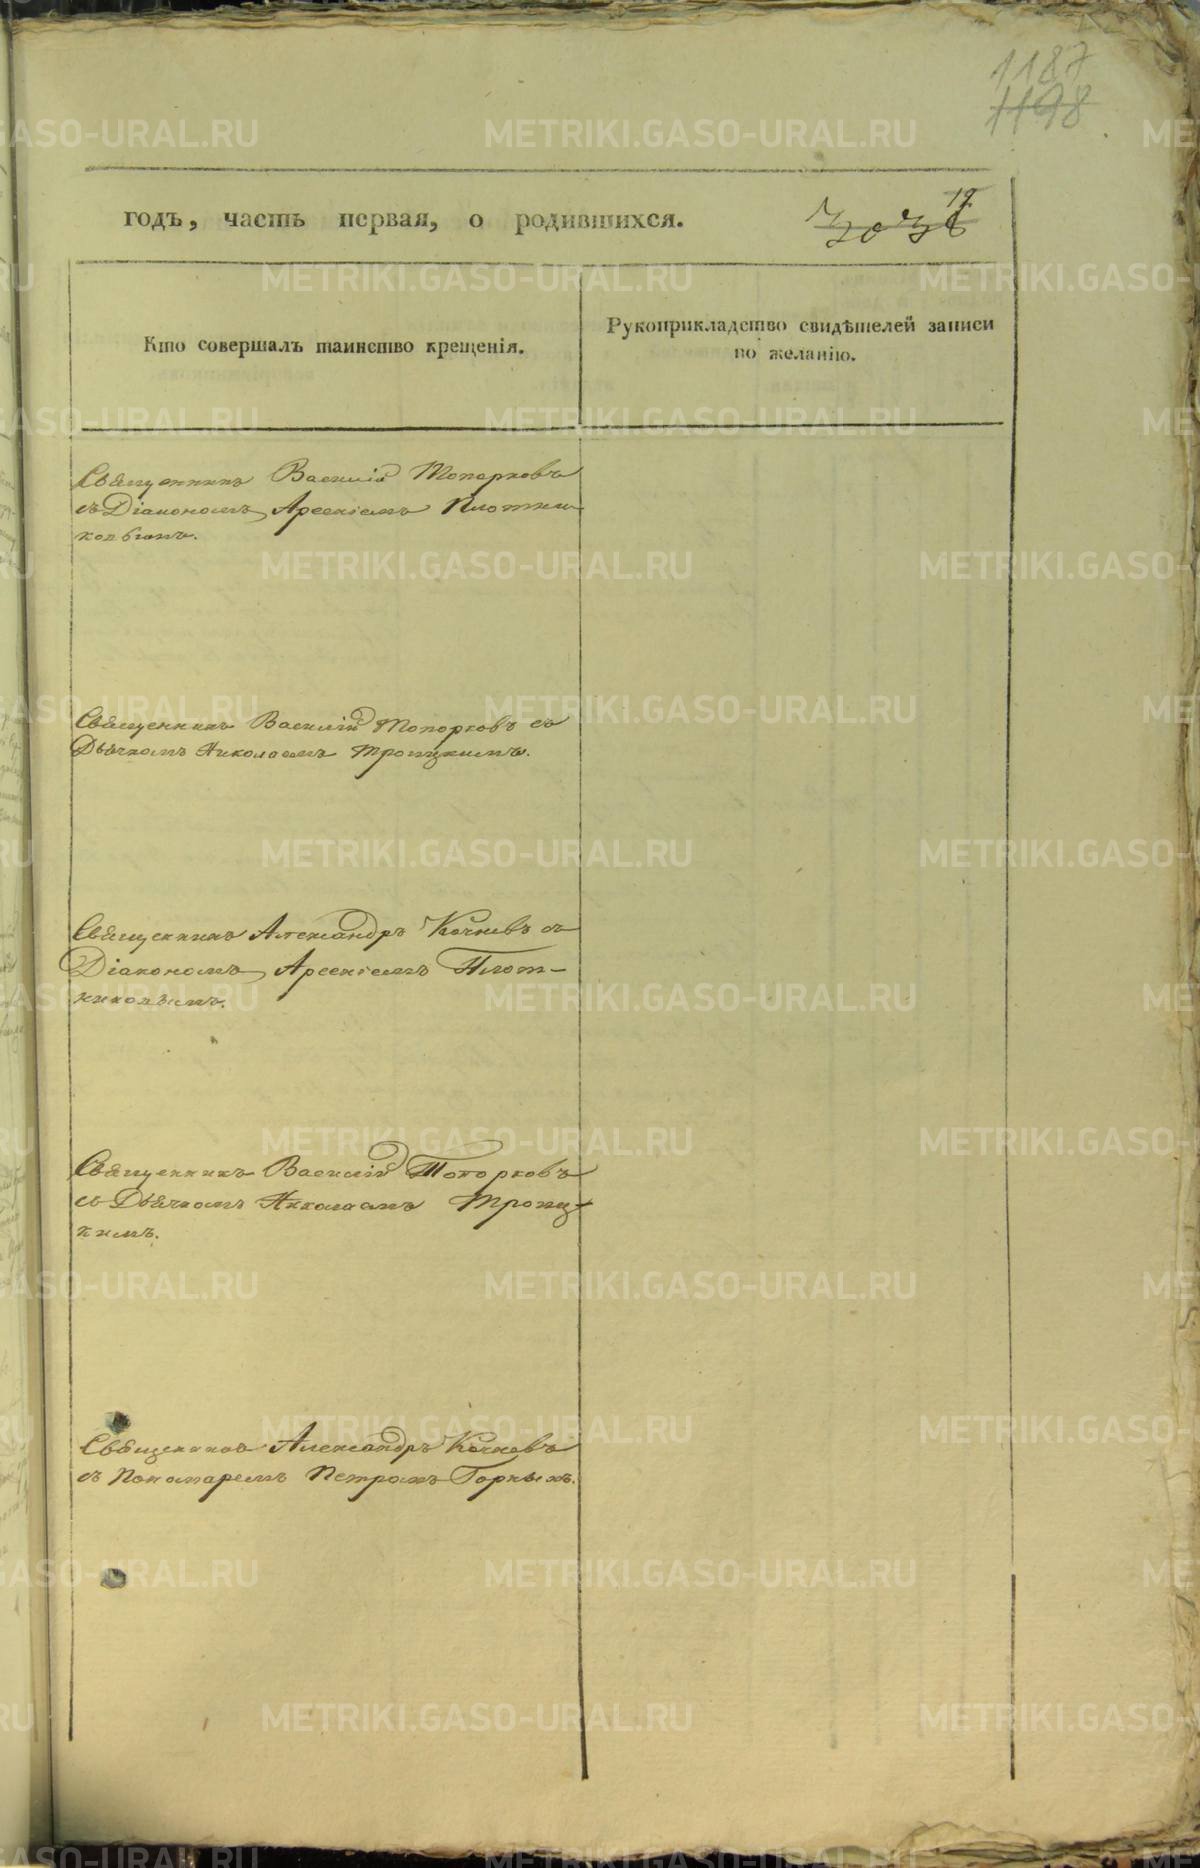 1187
1198
годъ, часть первая, о родившихся.
12
Кто совершалъ таинство крещенія.
Рукоприкладство свидѣтелей записи
по желанію.
Священникъ Василій Топорковъ
съ Діакономъ Арсеніемъ Плотни-
ковымъ.
Священникъ Василій Топорковъ съ
Дьячкомъ Николаемъ Троицкимъ.
Священникъ Александръ Кочневъ съ
Діакономъ Арсеніемъ Плот-
никовымъ.
Священникъ Василій Топорковъ
съ Дьячкомъ Николаемъ Троиц-
кимъ.
Священникъ Александръ Кочневъ
съ Пономаремъ Петромъ Горныхъ.
METRIKI.GASO-URAL.RU